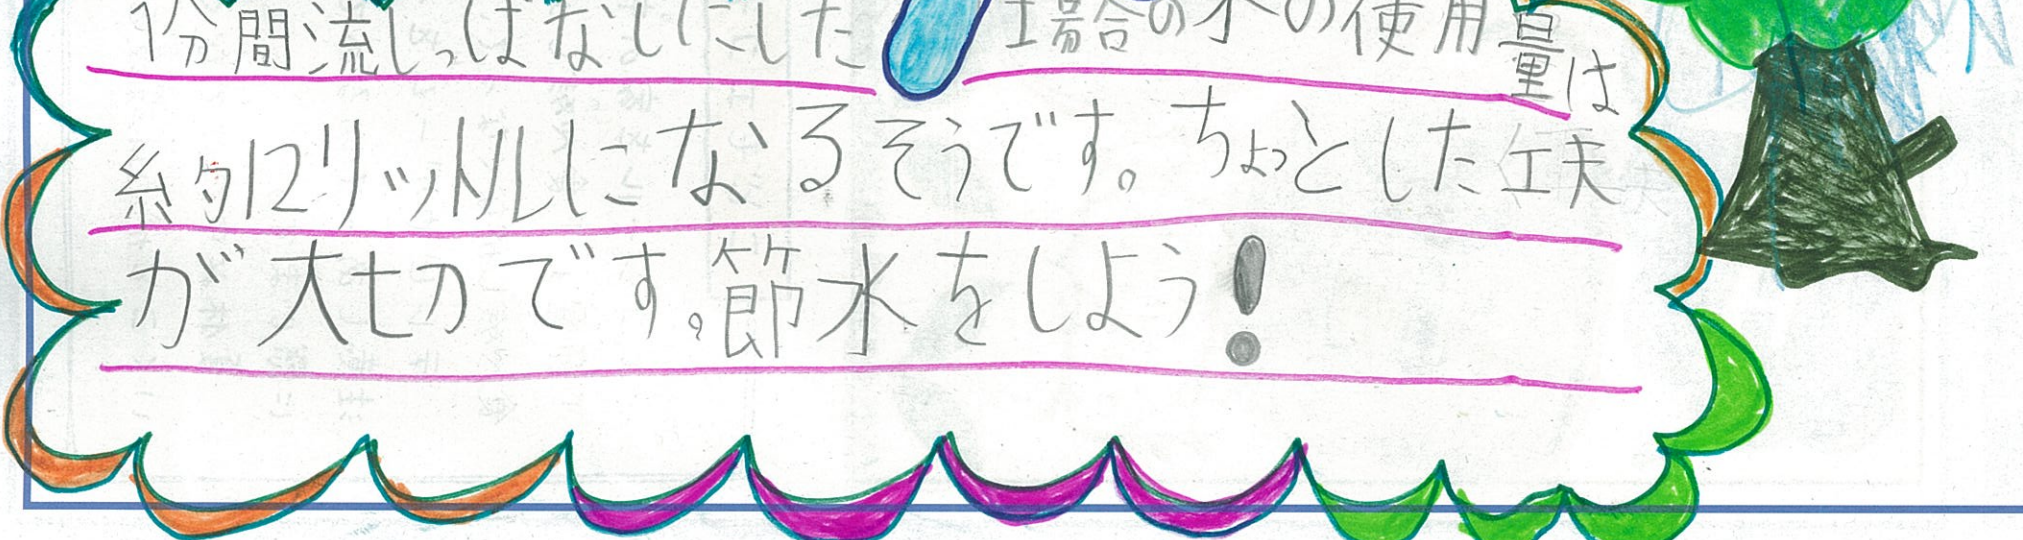 1分間流しっぱなしにした場合の水の使用量は
約12リットルになるそうです。ちょっとした工夫
が大切です。節水をしよう!